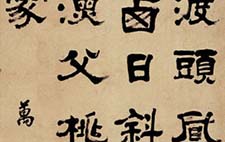 渡頭風
卥日斜
漁父桃
家
萬